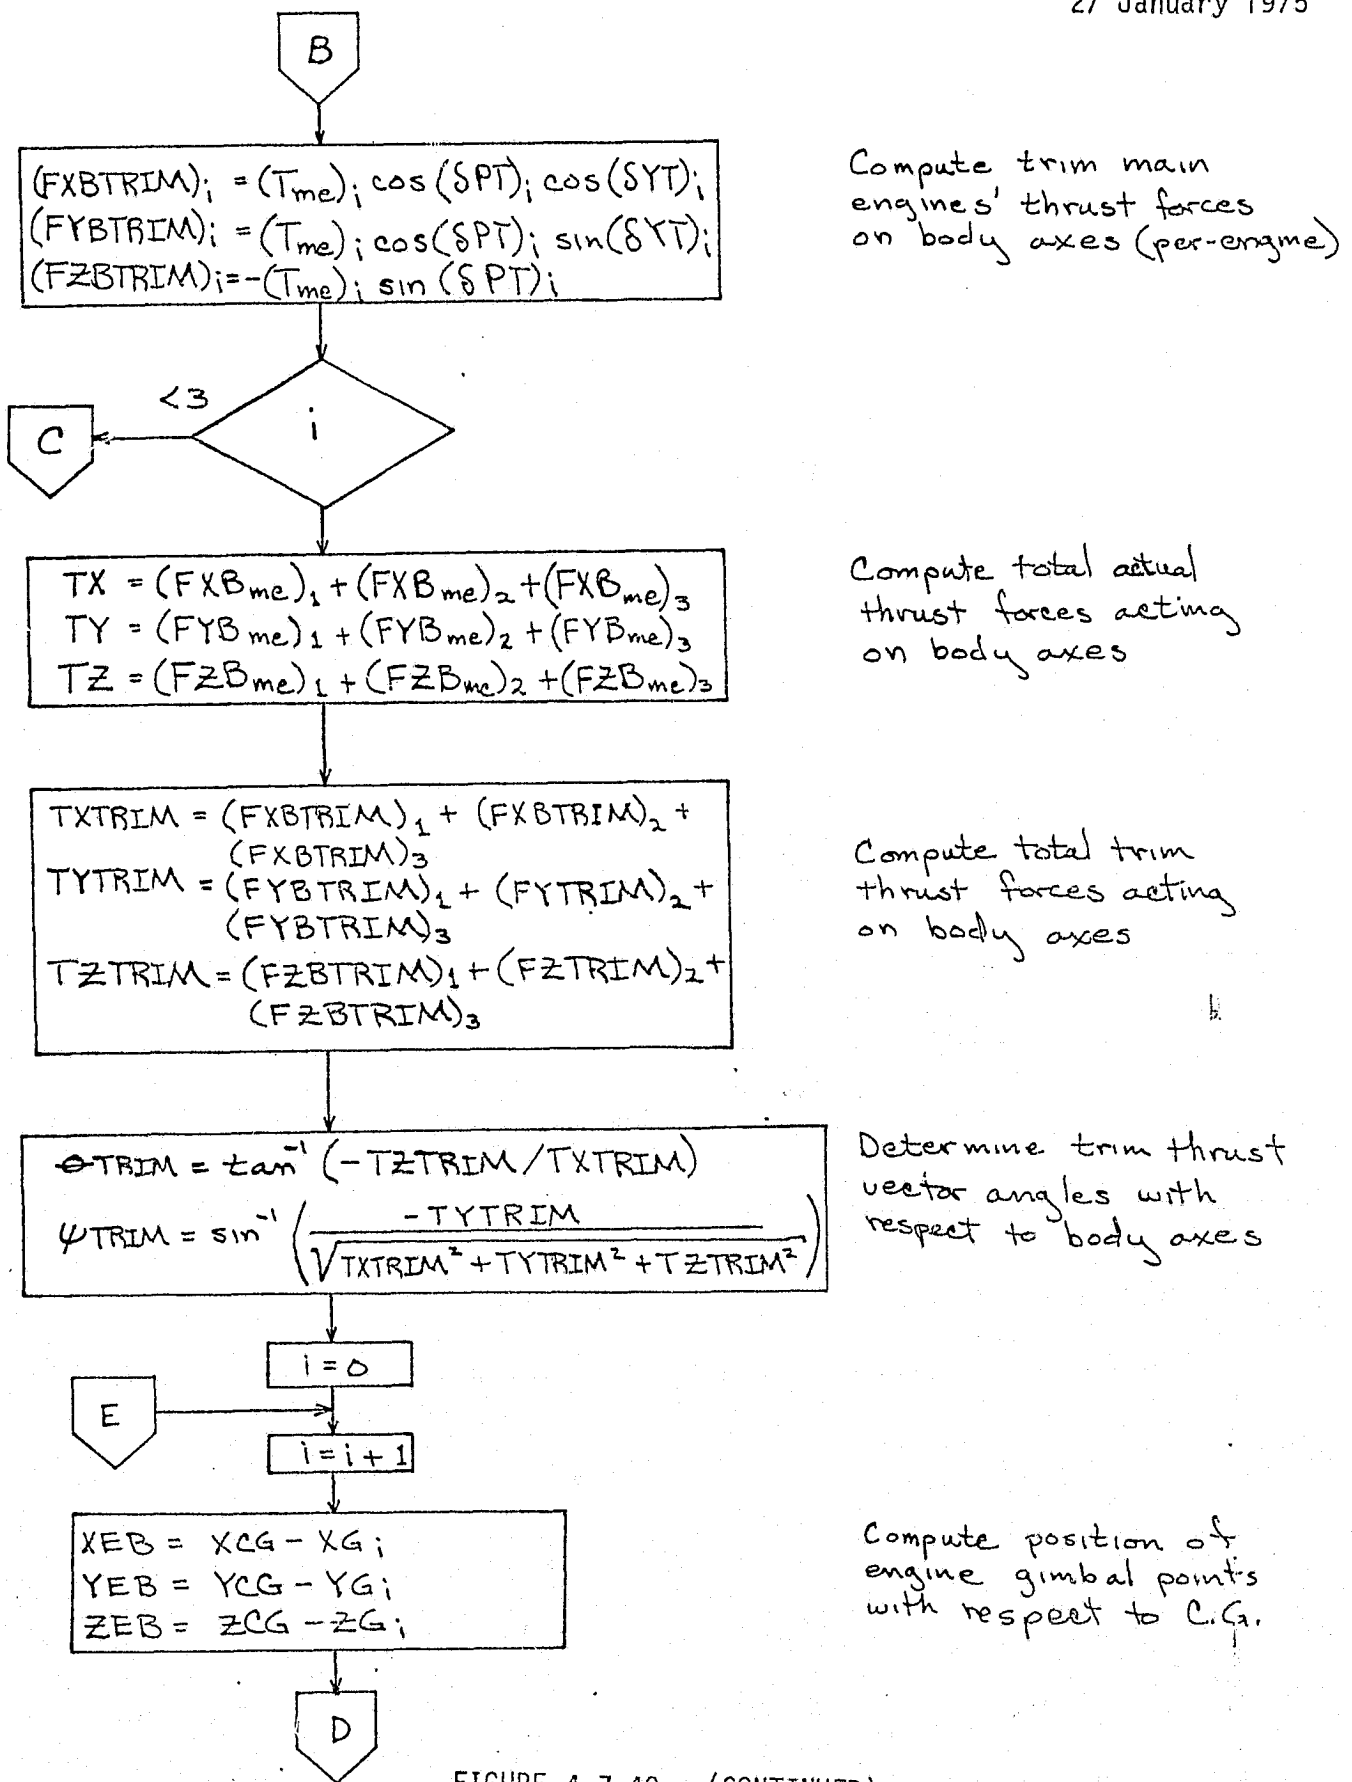 27 January 1975
B
(FXBTRIM)i = (Tme)i cos(δPT)i cos(δYT)i
(FYBTRIM)i = (Tme)i cos(δPT)i sin(δYT)i
(FZBTRIM)i = -(Tme)i sin(δPT)i
Compute trim main
engines' thrust forces
on body axes (per-engine)
<3
i
C
TX = (FXBme)1 + (FXBme)2 + (FXBme)3
TY = (FYBme)1 + (FYBme)2 + (FYBme)3
TZ = (FZBme)1 + (FZBme)2 + (FZBme)3
Compute total actual
thrust forces acting
on body axes
TXTRIM = (FXBTRIM)1 + (FXBTRIM)2 +
(FXBTRIM)3
TYTRIM = (FYBTRIM)1 + (FYTRIM)2 +
(FYBTRIM)3
TZTRIM = (FZBTRIM)1 + (FZTRIM)2 +
(FZBTRIM)3
Compute total trim
thrust forces acting
on body axes
ΘTRIM = tan⁻¹ (-TZTRIM/TXTRIM)
ψTRIM = sin⁻¹ (-TYTRIM / √TXTRIM² + TYTRIM² + TZTRIM²)
Determine trim thrust
vector angles with
respect to body axes
i = 0
E
i = i + 1
XEB = XCG - XGi
YEB = YCG - YGi
ZEB = ZCG - ZGi
Compute position of
engine gimbal points
with respect to C.G.
D
FIGURE 4.7-40 (CONTINUED)